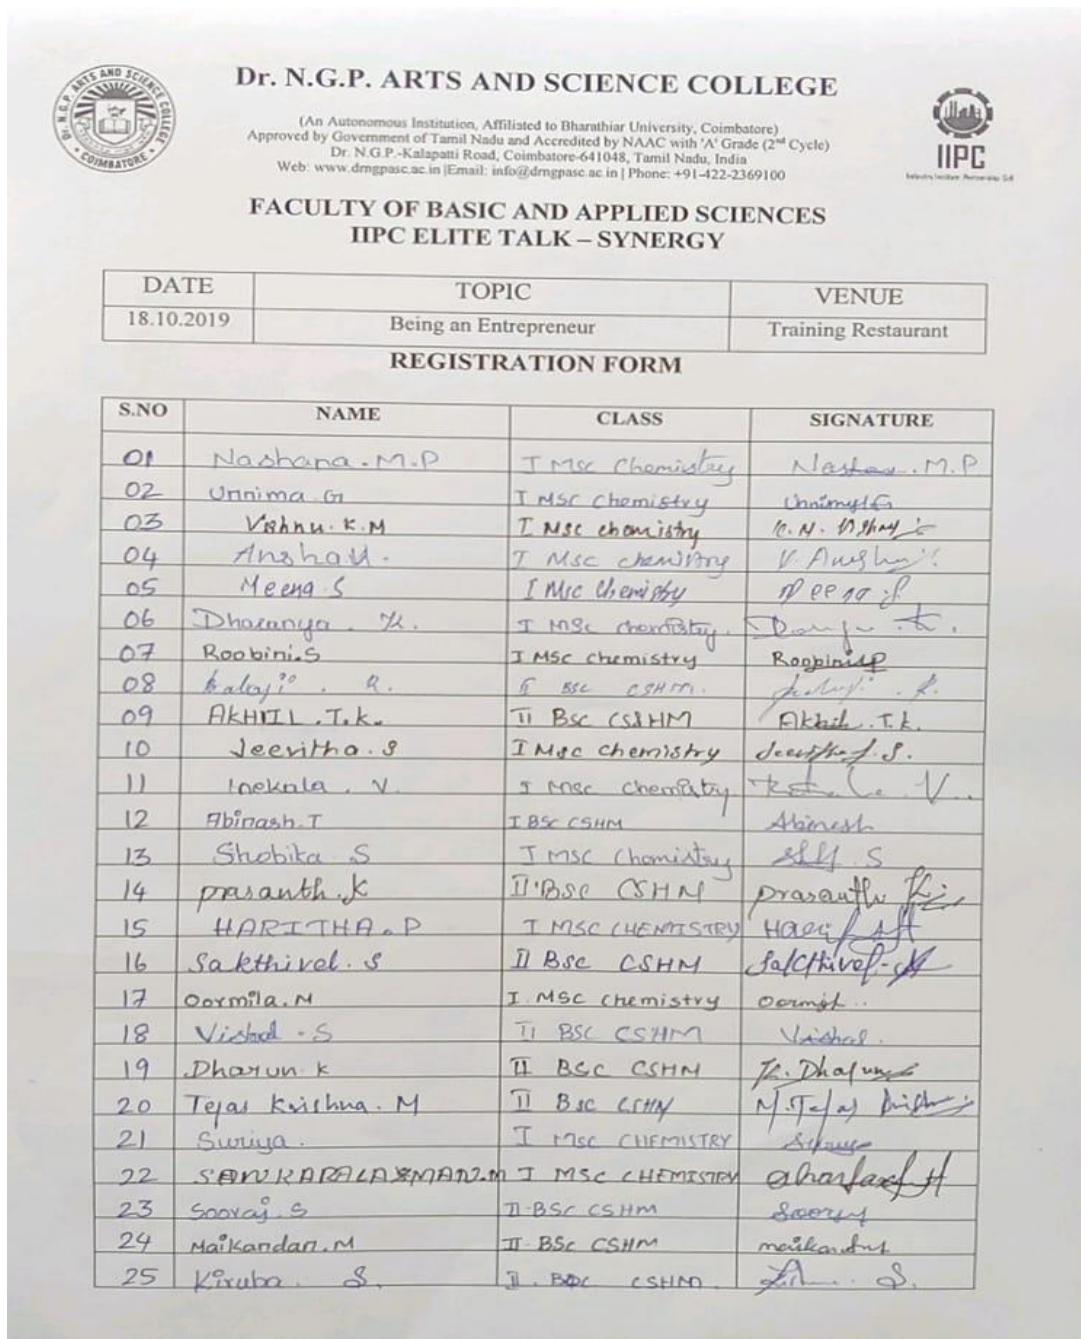 Dr. N.G.P. ARTS AND SCIENCE COLLEGE
(An Autonomous Institution, Affiliated to Bharathiar University, Coimbatore)
Approved by Government of Tamil Nadu and Accredited by NAAC with 'A' Grade (2nd Cycle)
Dr. N.G.P.-Kalapatti Road, Coimbatore-641048, Tamil Nadu, India
Web: www.drngpasc.ac.in |Email: info@drngpasc.ac.in | Phone: +91-422-2369100
Dr. N.G.P. ARTS AND SCIENCE COLLEGE
COIMBATORE
IIPC
FACULTY OF BASIC AND APPLIED SCIENCES
IIPC ELITE TALK – SYNERGY
DATE TOPIC VENUE
18.10.2019 Being an Entrepreneur Training Restaurant
REGISTRATION FORM
S.NO NAME CLASS SIGNATURE
01 Nashana.M.P I MSC Chemistry M.P
02 Unnima.G I MSC Chemistry
03 Vishnu.K.M I MSC chemistry
04 I MSC chemistry
05 Meena.S I MSC Chemistry Meena
06 Dharanya. K. I MSC chemistry.
07 Roobini.S I MSC chemistry
08 Balaji. R. BSC CSHM.
09 AKHIL.T.K. II BSC CSHM Akhil.T.K.
10 Jeevitha.S I MSC chemistry
11 V. I MSC chemistry
12 Abinash.T I BSC CSHM
13 Shobika.S I MSC Chemistry
14 prasanth.K II BSC CSHM prasanth
15 HARITHA.P I MSC CHEMISTRY
16 Sakthivel.S II BSC CSHM Sakthivel
17 Oormila.M I. MSC chemistry
18 Vishal.S II BSC CSHM Vishal.
19 Dharun K II BSC CSHM K. Dharun
20 Tejas Krishna.M II BSC CSHM M.Tejas Krishna
21 Suriya. I MSC CHEMISTRY
22 I MSC CHEMISTRY
23 Sooraj.S II-BSC CSHM
24 Maikandan.M II-BSC CSHM
25 Kiruba. S. II. BSC CSHM. S.